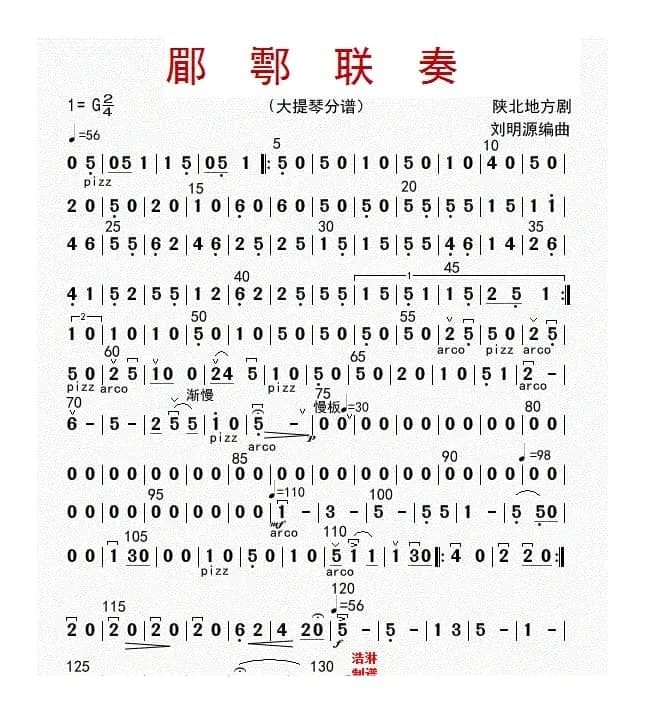 郿鄠联奏
1= G 2/4 （大提琴分谱） 陕北地方剧
♩=56 刘明源编曲
5 10
0 5 | 0 5 1 | 1 5 | 0 5 1 |: 5 0 | 5 0 | 1 0 | 5 0 | 1 0 | 4 0 | 5 0 |
pizz
15 20
2 0 | 5 0 | 2 0 | 1 0 | 6 0 | 6 0 | 5 0 | 5 0 | 5 5 | 5 5 | 1 5 | 1 1 |
25 30 35
4 6 | 5 5 | 6 2 | 4 6 | 2 5 | 2 5 | 1 5 | 1 5 | 5 5 | 4 6 | 1 4 | 2 6 |
40 1 45
4 1 | 5 2 | 5 5 | 1 2 | 6 2 | 2 5 | 5 5 | 1 5 | 5 1 | 1 5 | 2 5 1 :|
2 50 55
1 0 | 1 0 | 1 0 | 5 0 | 1 0 | 5 0 | 5 0 | 5 0 | 5 0 | 2 5 | 5 0 | 2 5 |
arco pizz arco
60 65
5 0 | 2 5 | 1 0 0 | 2 4 5 | 1 0 | 5 0 | 5 0 | 2 0 | 1 0 | 5 1 | 2 - |
pizz arco pizz arco
70 渐慢 75 慢板 ♩=30 80
6 - | 5 - | 2 5 5 | 1 0 | 5 - | 0 0 | 0 0 | 0 0 | 0 0 | 0 0 | 0 0 |
pizz arco p
85 90 ♩=98
0 0 | 0 0 | 0 0 | 0 0 | 0 0 | 0 0 | 0 0 | 0 0 | 0 0 | 0 0 | 0 0 | 0 0 |
95 ♩=110 100
0 0 | 0 0 | 0 0 | 0 0 | 0 0 | 1 - | 3 - | 5 - | 5 5 | 1 - | 5 5 0 |
mf
arco
105 110
0 0 | 1 3 0 | 0 0 | 1 0 | 5 0 | 1 0 | 5 1 1 | 1 3 0 |: 4 0 | 2 2 0 :|
pizz arco
115 120 ♩=56
2 0 | 2 0 | 2 0 | 2 0 | 6 2 | 4 2 0 | 5 - | 5 - | 1 3 | 5 - | 0 0 |
f
125 130 浩淋
制谱